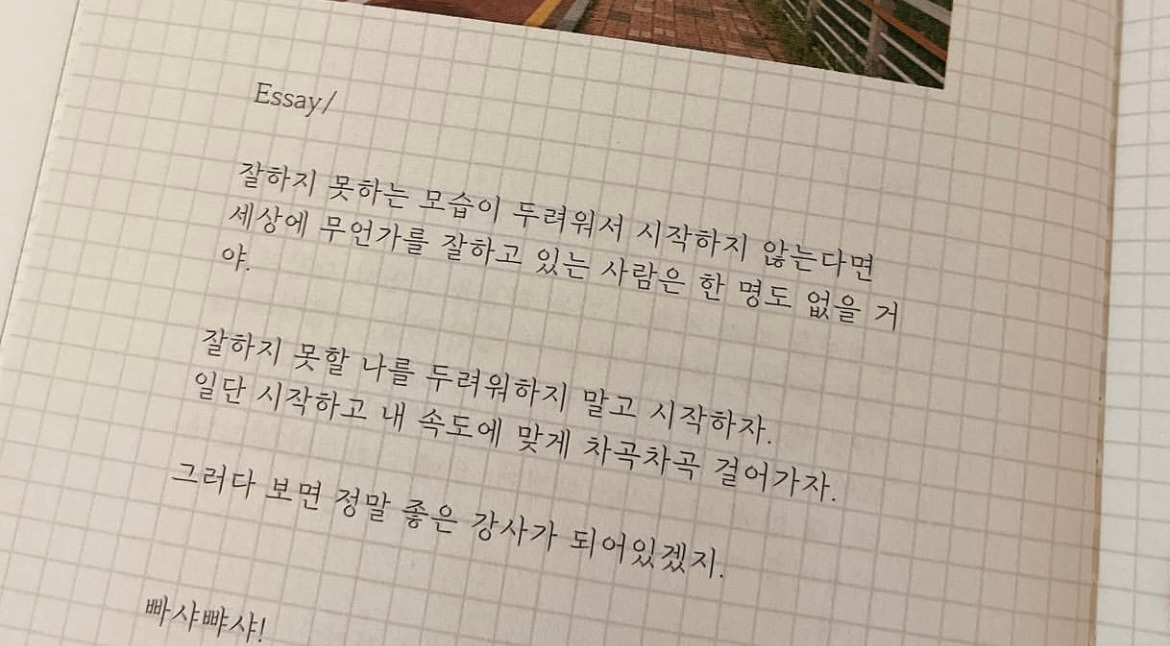 Essay/
잘하지 못하는 모습이 두려워서 시작하지 않는다면
세상에 무언가를 잘하고 있는 사람은 한 명도 없을 거
야.
잘하지 못할 나를 두려워하지 말고 시작하자.
일단 시작하고 내 속도에 맞게 차곡차곡 걸어가자.
그러다 보면 정말 좋은 강사가 되어있겠지.
빠샤빠샤!